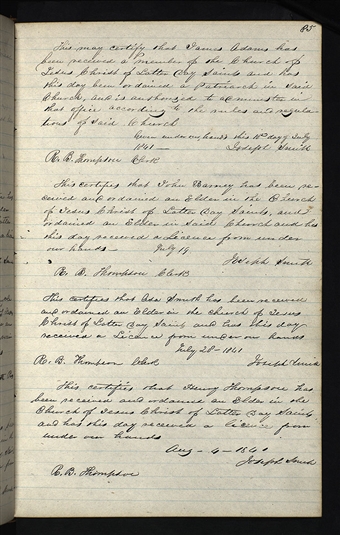 85
This may certify that James Adams has
been received a member of the Church of
Jesus Christ of Latter Day Saints and has
this day been ordained a Patriarch in said
Church, and is authorized to administer in
that office according to the rules and regula-
tions of said Church
Given under our hands this day of July
1841 — Joseph Smith
R. B. Thompson Clerk
This certifies that John Barney has been re-
ceived and ordained an Elder in the Church
of Jesus Christ of Latter Day Saints, and
ordained an Elder in said Church and has
this day received a Licence from under
our hands — July 19
Joseph Smith
R. B. Thompson Clerk
This certifies that Asa Smith has been received
and ordained an Elder in the Church of Jesus
Christ of Latter Day Saints and has this day
received a Licence from under our hands
July 28th 1841
R. B. Thompson Clerk Joseph Smith
This certifies that Henry Thompson has
been received and ordained an Elder in the
Church of Jesus Christ of Latter Day Saints
and has this day received a licence from
under our hands
Aug - 4 - 1841
Joseph Smith
R. B. Thompson